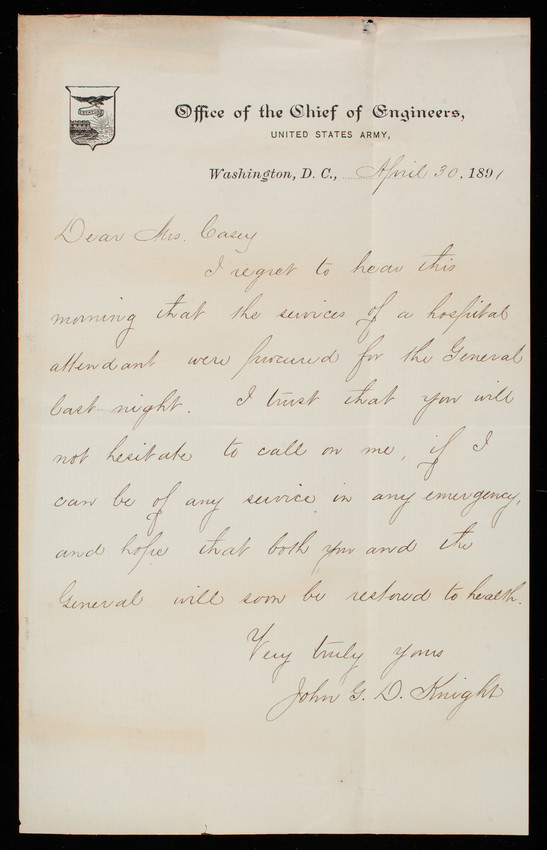 Office of the Chief of Engineers,
UNITED STATES ARMY,
Washington, D. C., April 30. 1891
Dear Mrs. Casey
I regret to hear this
morning that the services of a hospital
attendant were procured for the General
last night. I trust that you will
not hesitate to call on me, if I
can be of any service in any emergency,
and hope that both you and the
General will soon be restored to health.
Very truly yours
John G. D. Knight